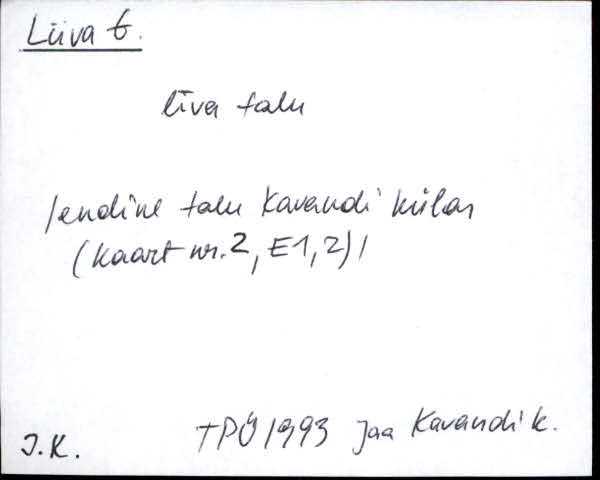 Liiva t.
līva talu
/endine talu Kavandi külas
(kaart nr. 2, E1,2)/
J.K. TPÜ 1993 Jaa Kavandi k.